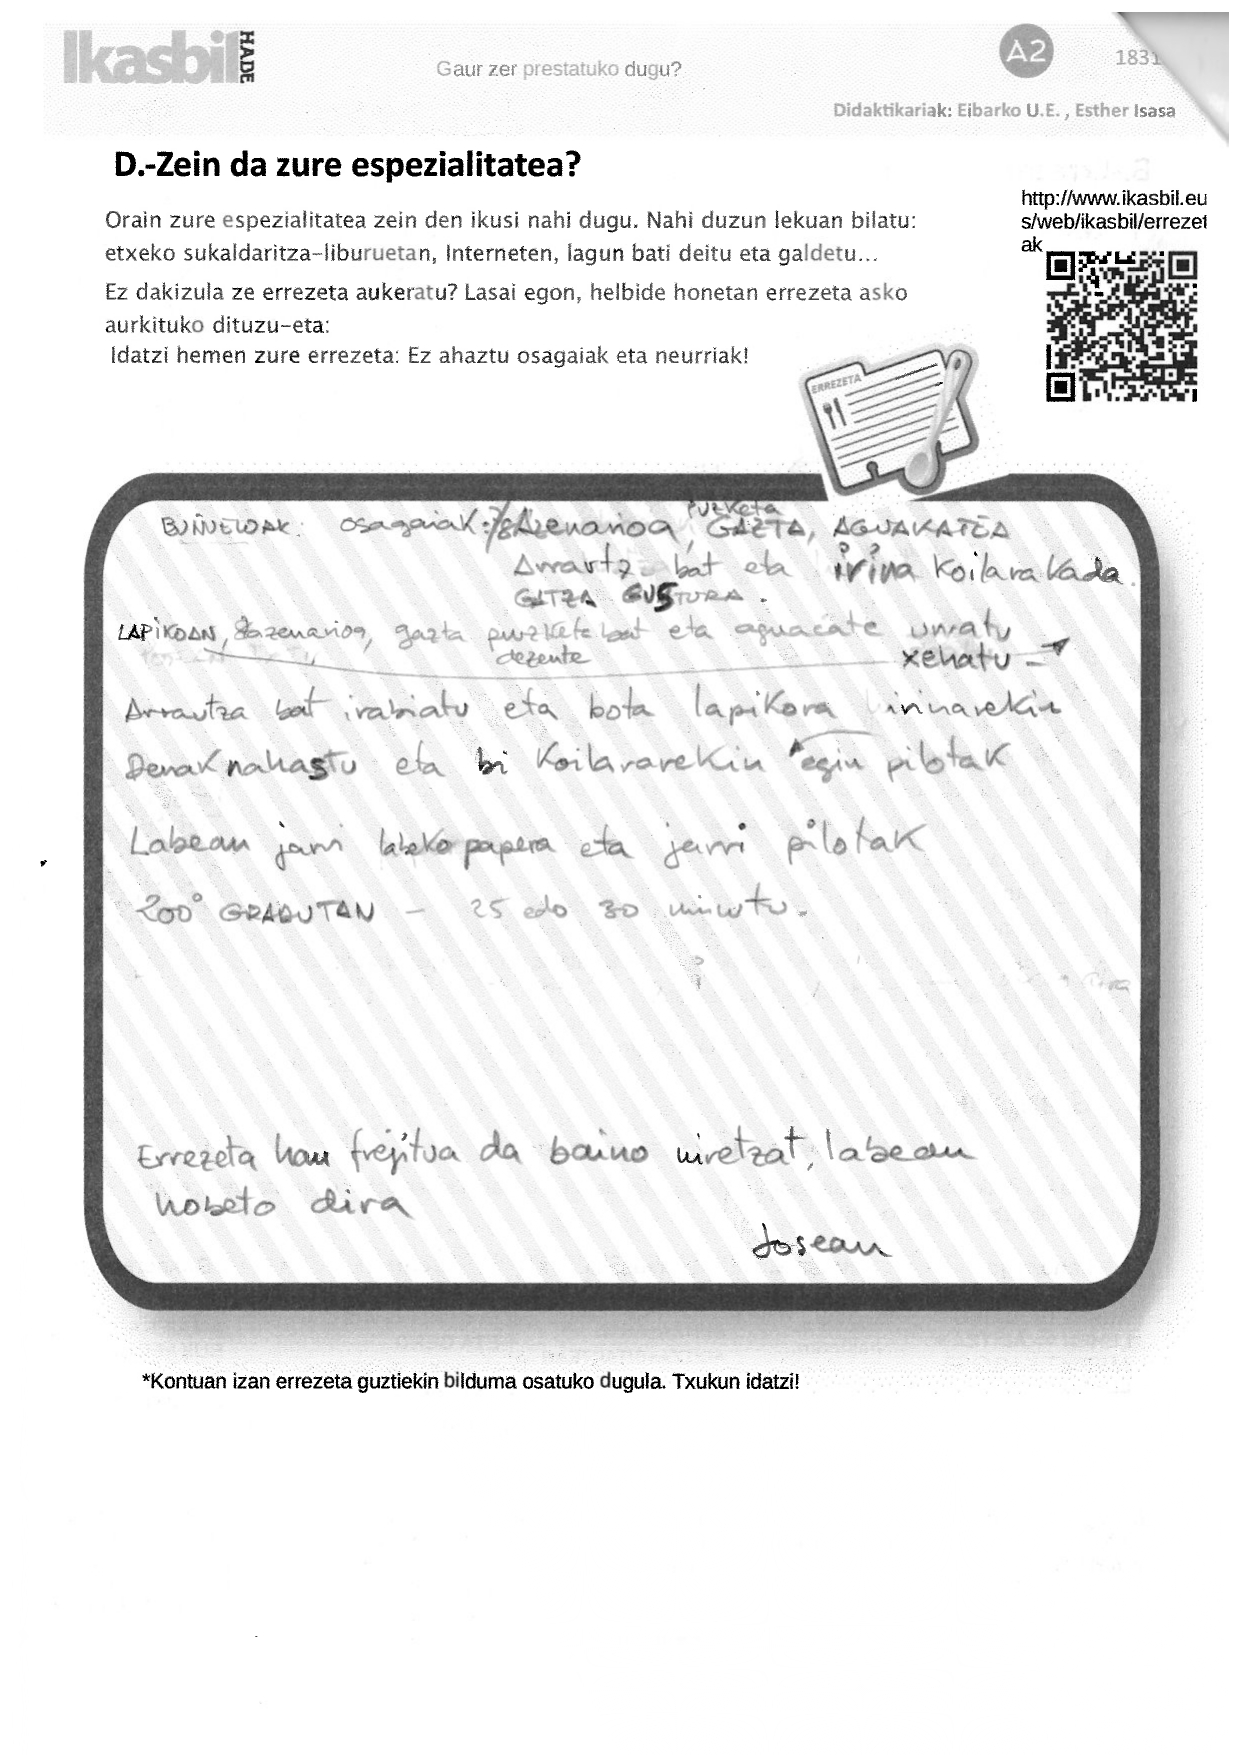 Ikasbil HADE
Gaur zer prestatuko dugu?
A2
1831
Didaktikariak: Eibarko U.E. , Esther Isasa
D.-Zein da zure espezialitatea?
Orain zure espezialitatea zein den ikusi nahi dugu. Nahi duzun lekuan bilatu:
etxeko sukaldaritza-liburuetan, Interneten, lagun bati deitu eta galdetu...
Ez dakizula ze errezeta aukeratu? Lasai egon, helbide honetan errezeta asko
aurkituko dituzu-eta:
Idatzi hemen zure errezeta: Ez ahaztu osagaiak eta neurriak!
http://www.ikasbil.eu
s/web/ikasbil/errezet
ak
ERREZETA
puzketa
BUÑUELOAK: osagaiak: Azenarioa, GAZTA, AGUAKATEA
Arrautz bat eta irina koilarakada.
GATZA GUSTURA.
LAPiKOAN, azenarioa, gazta puzketa bat eta aguacate urratu
dezente xehatu
Arrautza bat irabiatu eta bota lapikora irinarekin
Denak nahastu eta bi koilararekin egin pilotak
Labean jarri labeko papera eta jarri pilotak
200° GRADUTAN - 25 edo 30 minutu.
Errezeta hau frejitua da baino niretzat, labean
hobeto dira
Josean
*Kontuan izan errezeta guztiekin bilduma osatuko dugula. Txukun idatzi!